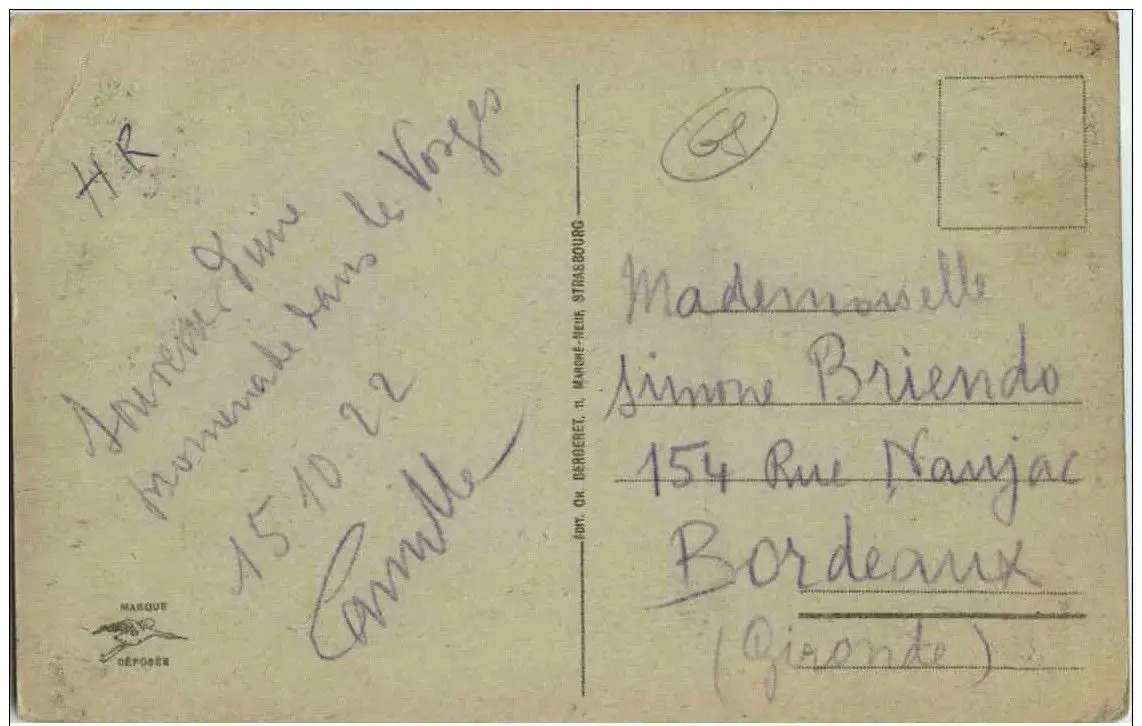 HR
Souvenir d'une
promenade dans les Vosges
15.10.22
Camille
MARQUE
DÉPOSÉE
ÉDIT. CH. BERGERET, 11, MARCHÉ-NEUF, STRASBOURG
Mademoiselle
Simone Briendo
154 Rue Naujac
Bordeaux
(Gironde)